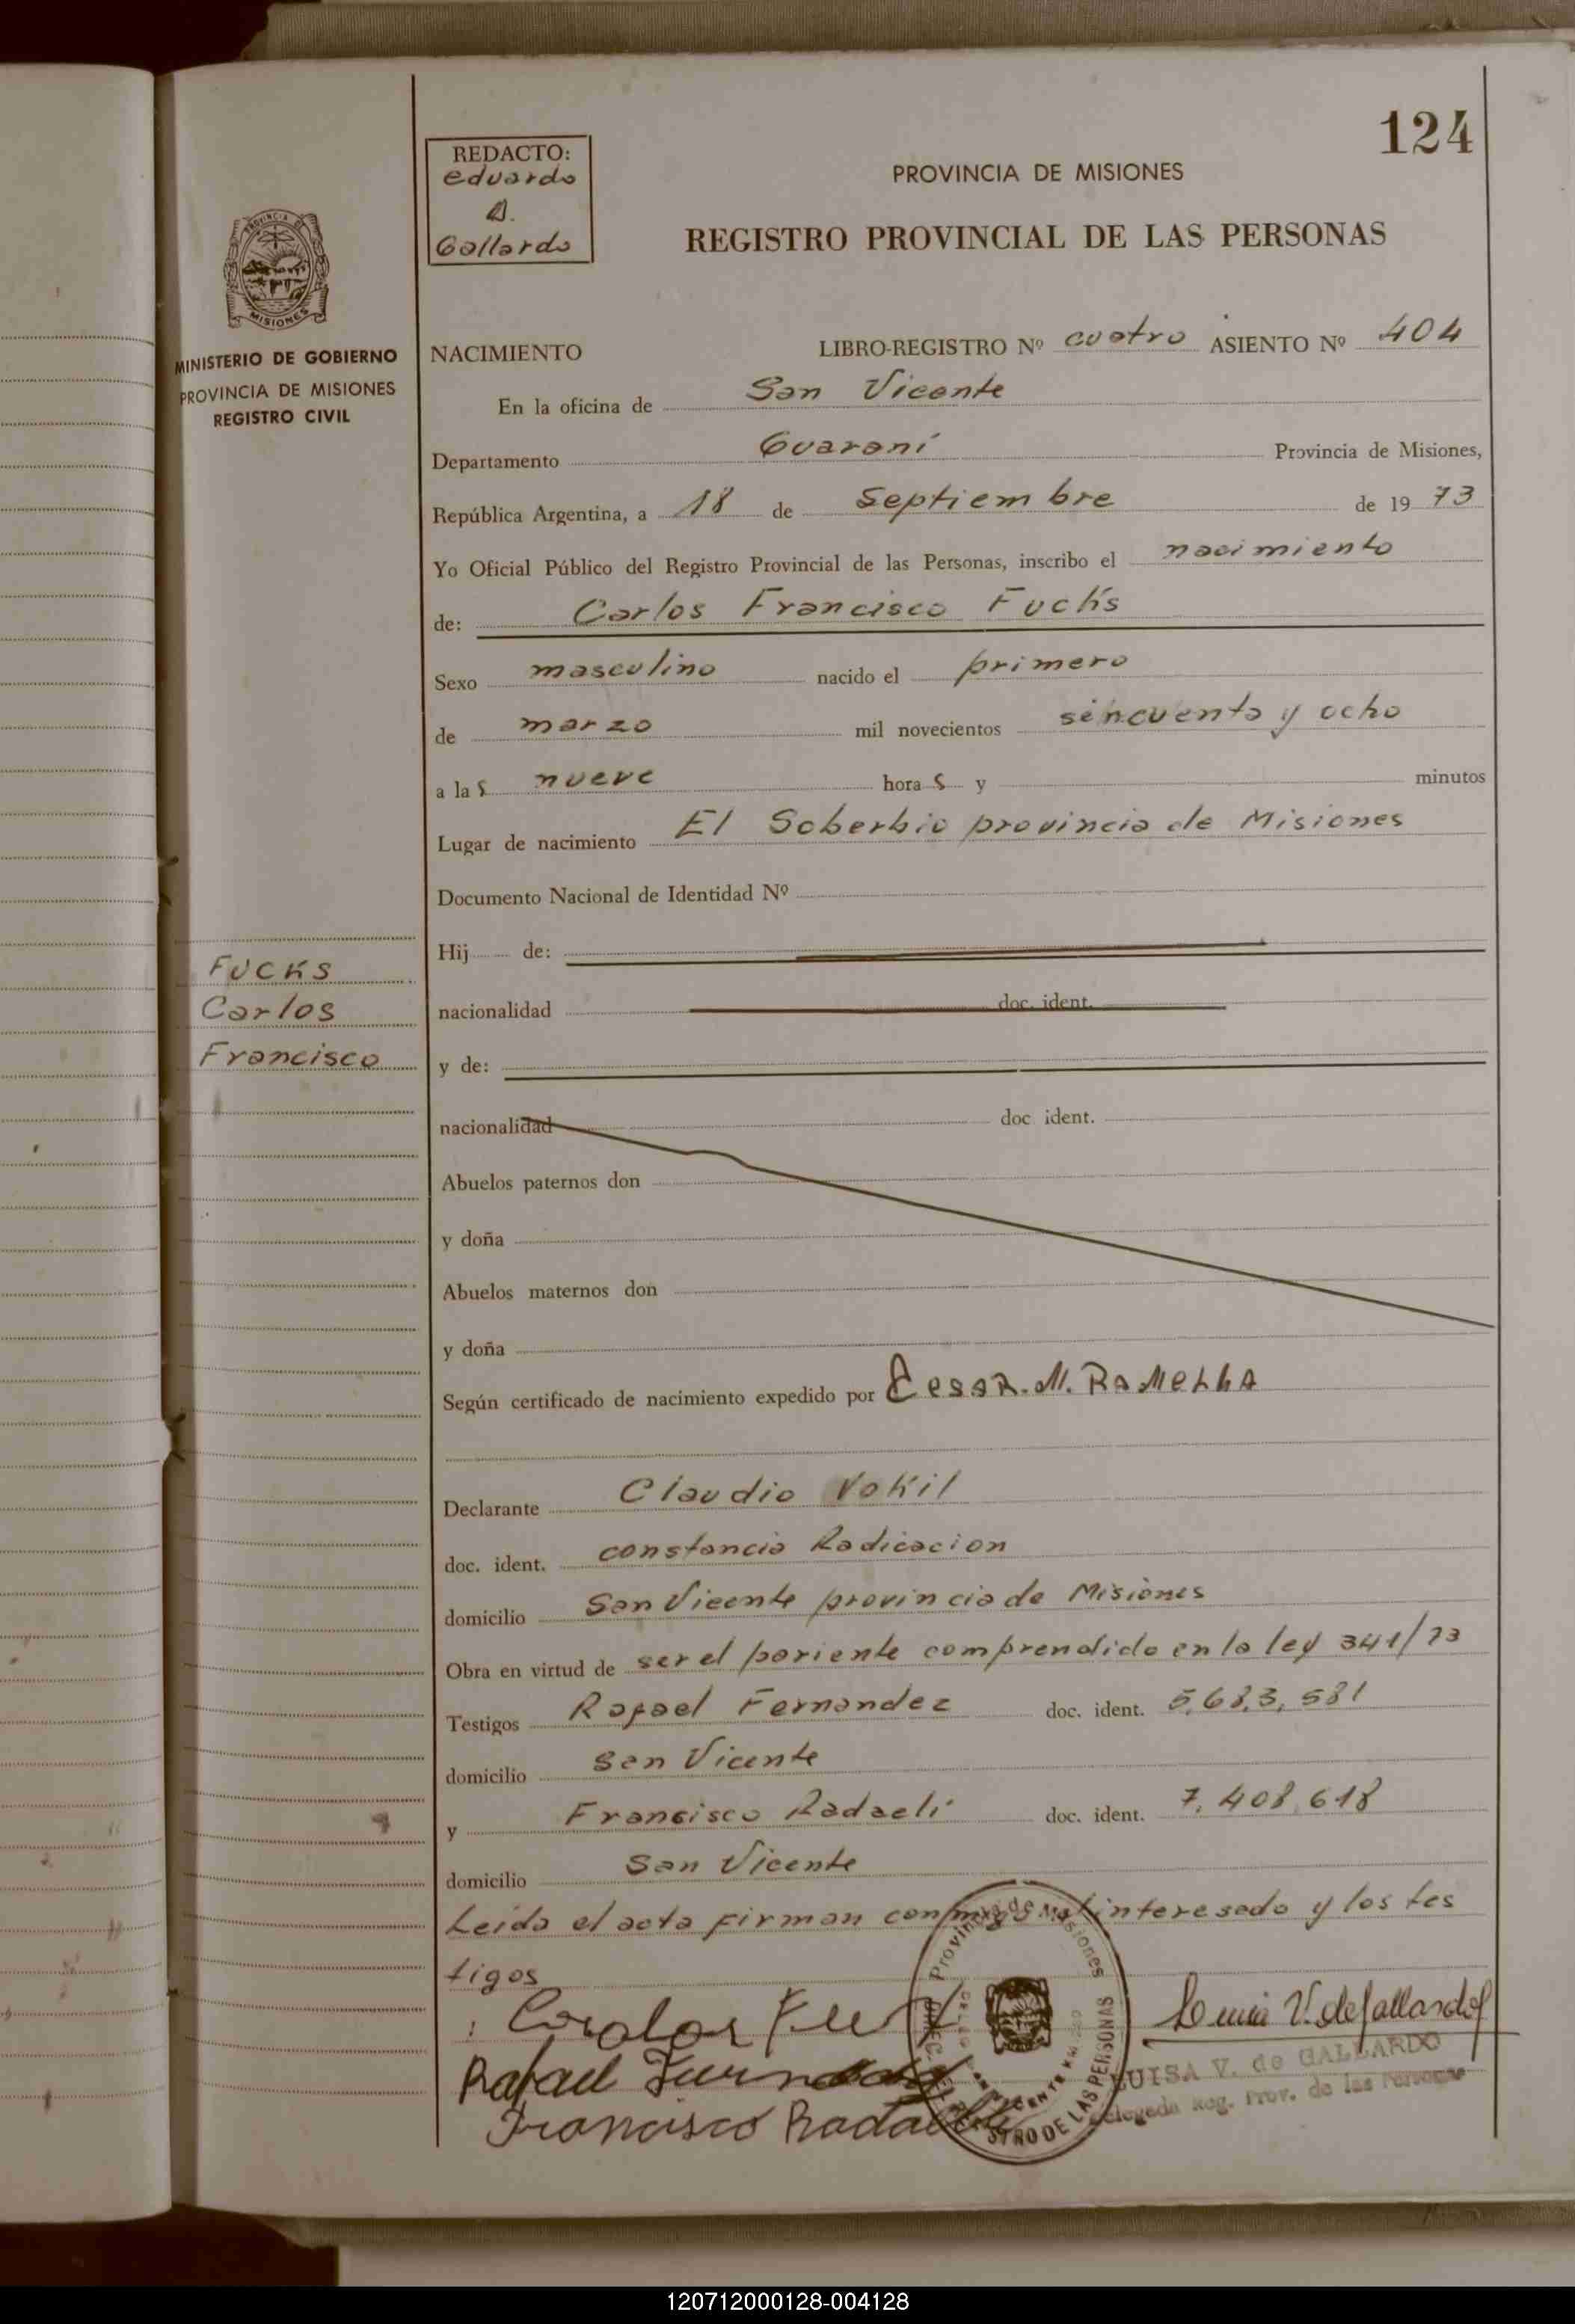 124
REDACTO:
eduardo
A.
Gallardo
PROVINCIA DE MISIONES
REGISTRO PROVINCIAL DE LAS PERSONAS
PROVINCIA DE
MISIONES
MINISTERIO DE GOBIERNO
PROVINCIA DE MISIONES
REGISTRO CIVIL
NACIMIENTO LIBRO-REGISTRO Nº cuatro ASIENTO Nº 404
En la oficina de San Vicente
Departamento Guaraní Provincia de Misiones,
República Argentina, a 18 de Septiembre de 19 73
Yo Oficial Público del Registro Provincial de las Personas, inscribo el nacimiento
de: Carlos Francisco Fucks
Sexo masculino nacido el primero
de marzo mil novecientos sincuenta y ocho
a las nueve horas y minutos
Lugar de nacimiento El Soberbio provincia de Misiones
Documento Nacional de Identidad Nº
Hij de:
FUCKS
Carlos
Francisco
nacionalidad doc. ident.
y de:
nacionalidad doc ident.
Abuelos paternos don
y doña
Abuelos maternos don
y doña
Según certificado de nacimiento expedido por Cesar. M. Ramella
Declarante Claudio Vokil
doc. ident. constancia Radicacion
domicilio San Vicente provincia de Misiones
Obra en virtud de ser el pariente comprendido en la ley 341/73
Testigos Rafael Fernandez doc. ident. 5,683,581
domicilio San Vicente
y Francisco Radaeli doc. ident. 7,408,618
domicilio San Vicente
Leida el acta firman conmigo el interesado y los tes
tigos
Provincia de Misiones
REGISTRO DE LAS PERSONAS
Rafael Fernandez
Francisco Radaelli
Luisa V. de Gallardo
LUISA V. de GALLARDO
Delegada Reg. Prov. de las Personas
120712000128-004128